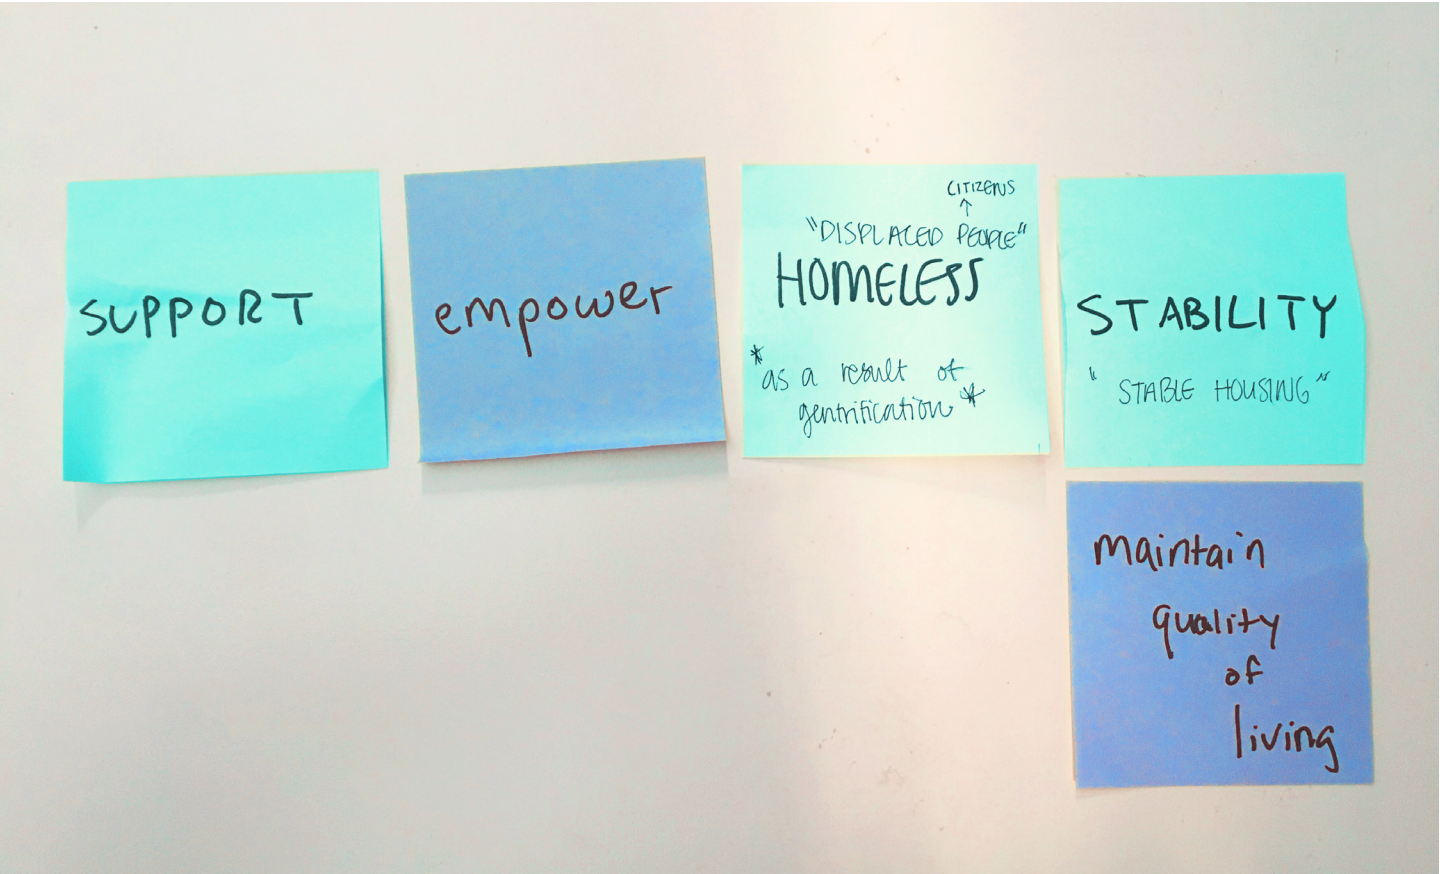 SUPPORT
empower
CITIZENS
↑
"DISPLACED PEOPLE"
HOMELESS
*as a result of
gentrification*
STABILITY
"STABLE HOUSING"
maintain
quality
of
living